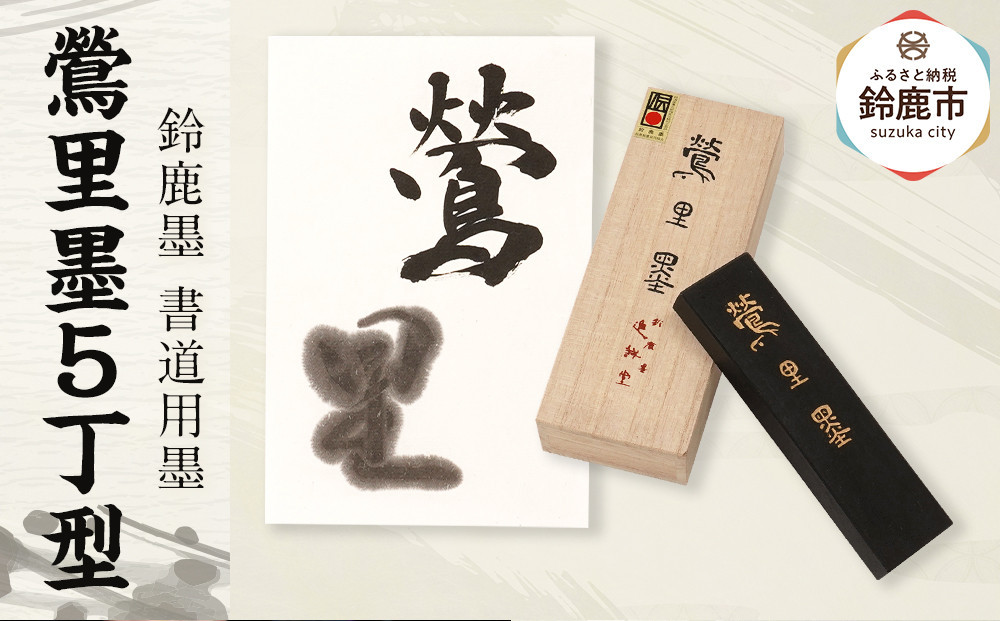 鶯里墨5丁型
鈴鹿墨 書道用墨
鶯
里
鶯里墨
鈴鹿墨
進誠堂
伝
鶯里墨
ふるさと納税
鈴鹿市
suzuka city